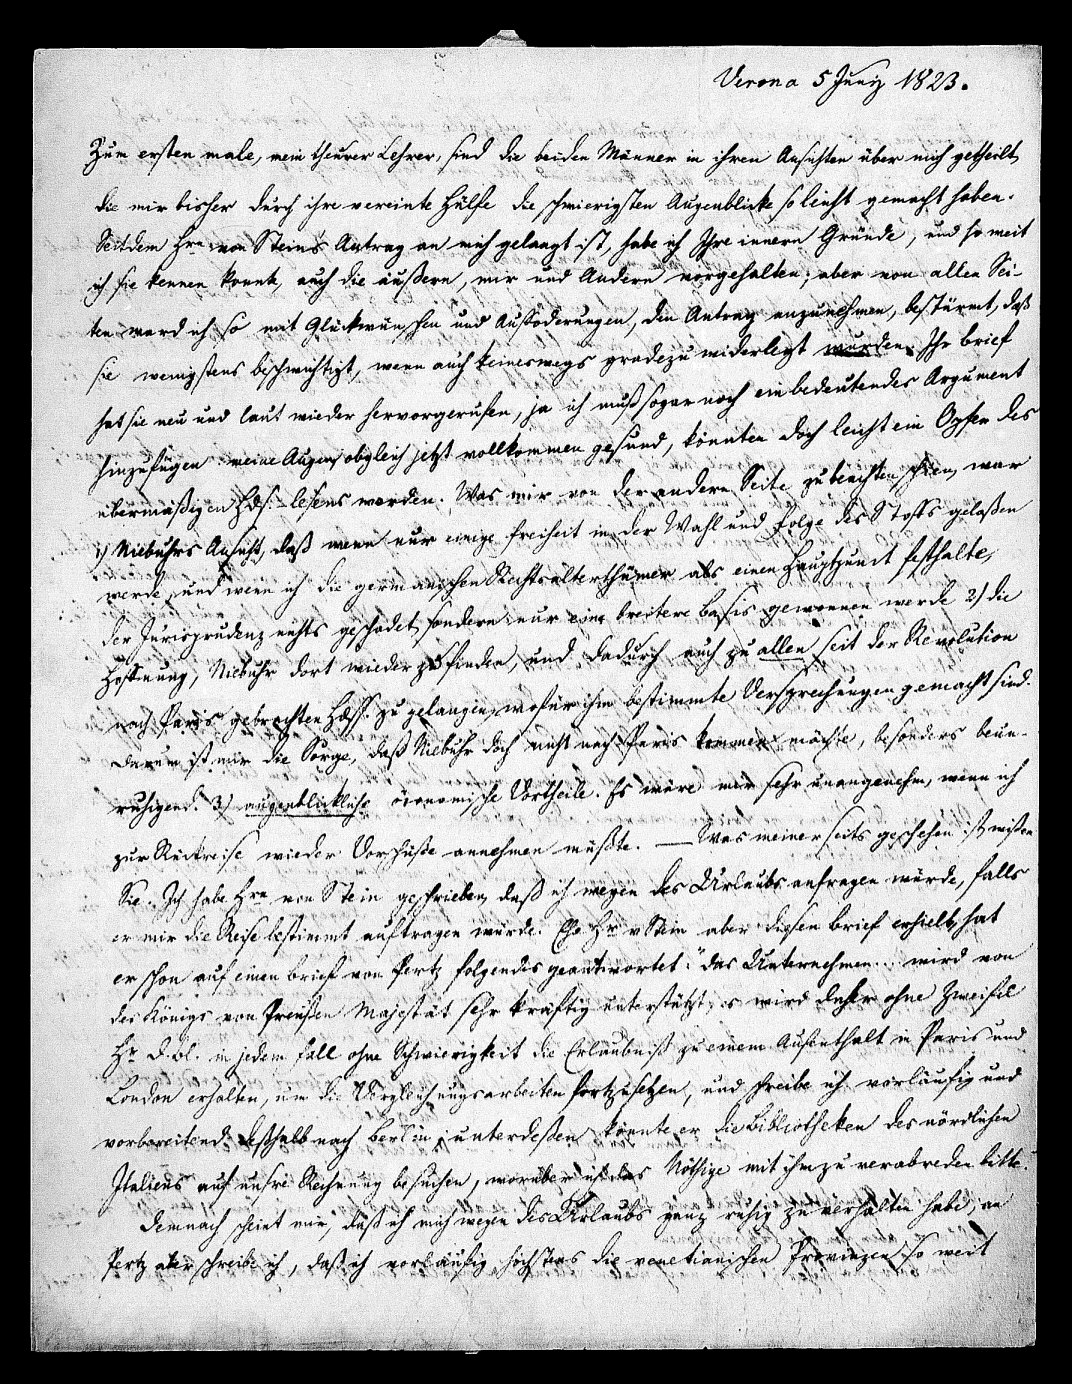 Verona 5 Juny 1823.
Zum ersten male, mein theurer Lehrer, sind die beiden Männer in ihren Ansichten über mich getheilt,
die mir bisher durch ihre vereinte Hülfe die schwierigsten Augenblicke so leicht gemacht haben.
Seitdem Hrn von Steins Antrag an mich gelangt ist, habe ich Ihre innern Gründe, und so weit
ich sie kennen konnte, auch die äußern, mir und Andern vorgehalten; aber von allen Sei-
ten ward ich so mit Glückwünschen und Auffoderungen, den Antrag anzunehmen, bestürmt, daß
sie wenigstens beschwichtigt, wenn auch keineswegs gradezu widerlegt wurden. Ihr brief
hat sie neu und laut wieder hervorgerufen, ja ich muß sogar noch ein bedeutendes Argument
hinzufügen: meine Augen, obgleich jetzt vollkommen gesund, könnten doch leicht ein Opfer des
übermäßigen Hds.-lesens werden. Was mir von der andern Seite zu beachten schien, war
1) Niebuhrs Ansicht, daß wenn nur einige Freiheit in der Wahl und Folge des Stoffs gelaßen
werde, und wenn ich die germanischen Rechtsalterthümer als einen Hauptpunct festhalte,
der Jurisprudenz nichts geschadet, sondern nur eine breitere Basis gewonnen werde 2) die
Hoffnung, Niebuhr dort wieder zu finden, und dadurch auch zu allen seit der Revolution
nach Paris gebrachten Hdss. zu gelangen, wofür ihm bestimmte Versprechungen gemacht sind.
Darum ist mir die Sorge, daß Niebuhr doch nicht nach Paris kommen möchte, besonders beun-
ruhigend. 3) augenblickliche öconomische Vortheile. Es wäre mir sehr unangenehm, wenn ich
zur Rückreise wieder Vorschüße annehmen müßte. — Was meinerseits geschehen ist, wißen
Sie. Ich habe Hrn von Stein geschrieben, daß ich wegen des Urlaubs anfragen würde, falls
er mir die Reise bestimmt auftragen würde. Ehe Hr v Stein aber diesen brief erhielt, hat
er schon auf einen brief von Pertz folgendes geantwortet: "das Unternehmen... wird von
des Königs von Preußen Majestät sehr kräftig unterstützt; es wird daher ohne Zweifel
Hr D. Bl. in jedem Fall ohne Schwierigkeit die Erlaubniß zu einem Aufenthalt in Paris und
London erhalten, um die Vergleichungsarbeiten fortzusetzen, und schreibe ich vorläufig und
vorbereitend deßhalb nach Berlin; unterdeßen könnte er die Bibliotheken des nördlichen
Italiens auf unsre Rechnung besuchen, worüber ich das Nöthige mit ihm zu verabreden bitte."
Demnach scheint mir, daß ich mich wegen des Urlaubs ganz ruhig zu verhalten habe; an
Pertz aber schreibe ich, daß ich vorläufig höchstens die venetianischen Provinzen, so weit